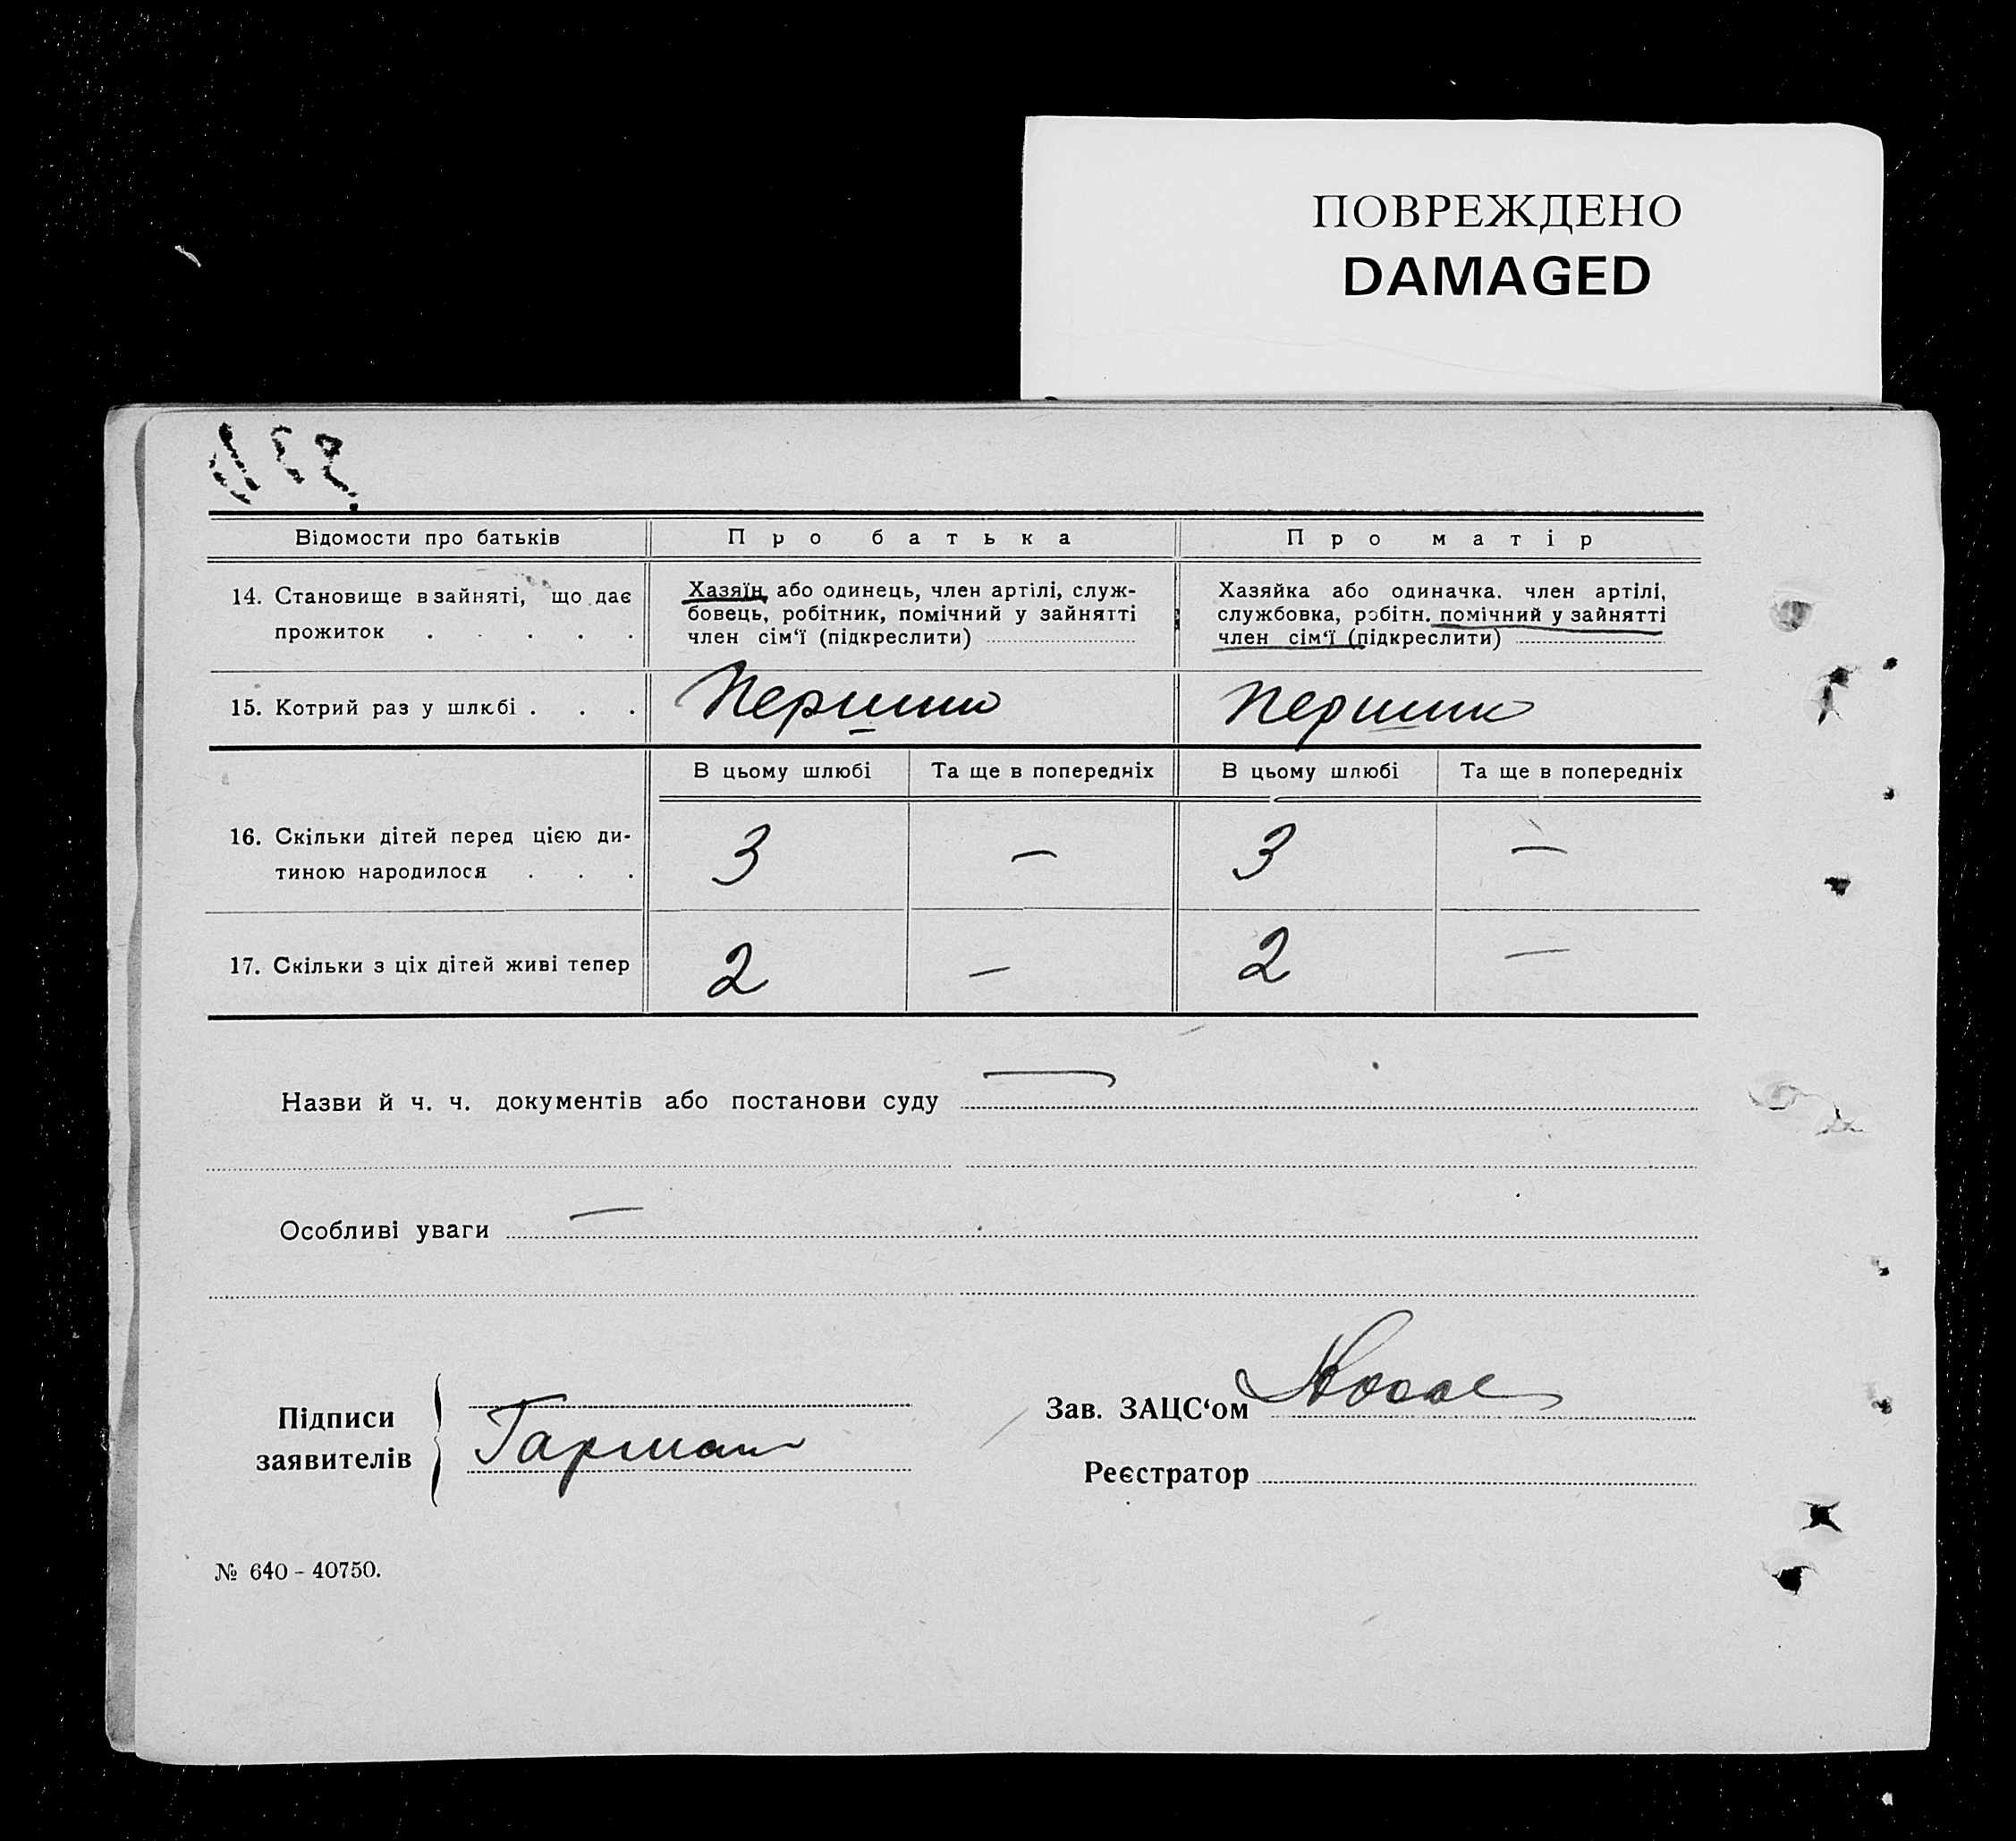 ПОВРЕЖДЕНО
DAMAGED
Відомости про батьків
Про батька
Про матір
14. Становище в зайняті, що дає
прожиток . . . . .
Хазяїн або одинець, член артілі, служ-
бовець, робітник, помічний у зайнятті
член сім‘ї (підкреслити)
Хазяйка або одиначка. член артілі,
службовка, робітн. помічний у зайнятті
член сім‘ї (підкреслити)
15. Котрий раз у шлюбі . . .
Перший
Перший
В цьому шлюбі
Та ще в попередніх
В цьому шлюбі
Та ще в попередніх
16. Скільки дітей перед цією ди-
тиною народилося . . .
3
—
3
—
17. Скільки з ціх дітей живі тепер
2
—
2
—
Назви й ч. ч. документів або постанови суду —
Особливі уваги —
Підписи
заявителів
Гарман
Зав. ЗАЦС‘ом
Реєстратор
№ 640 - 40750.